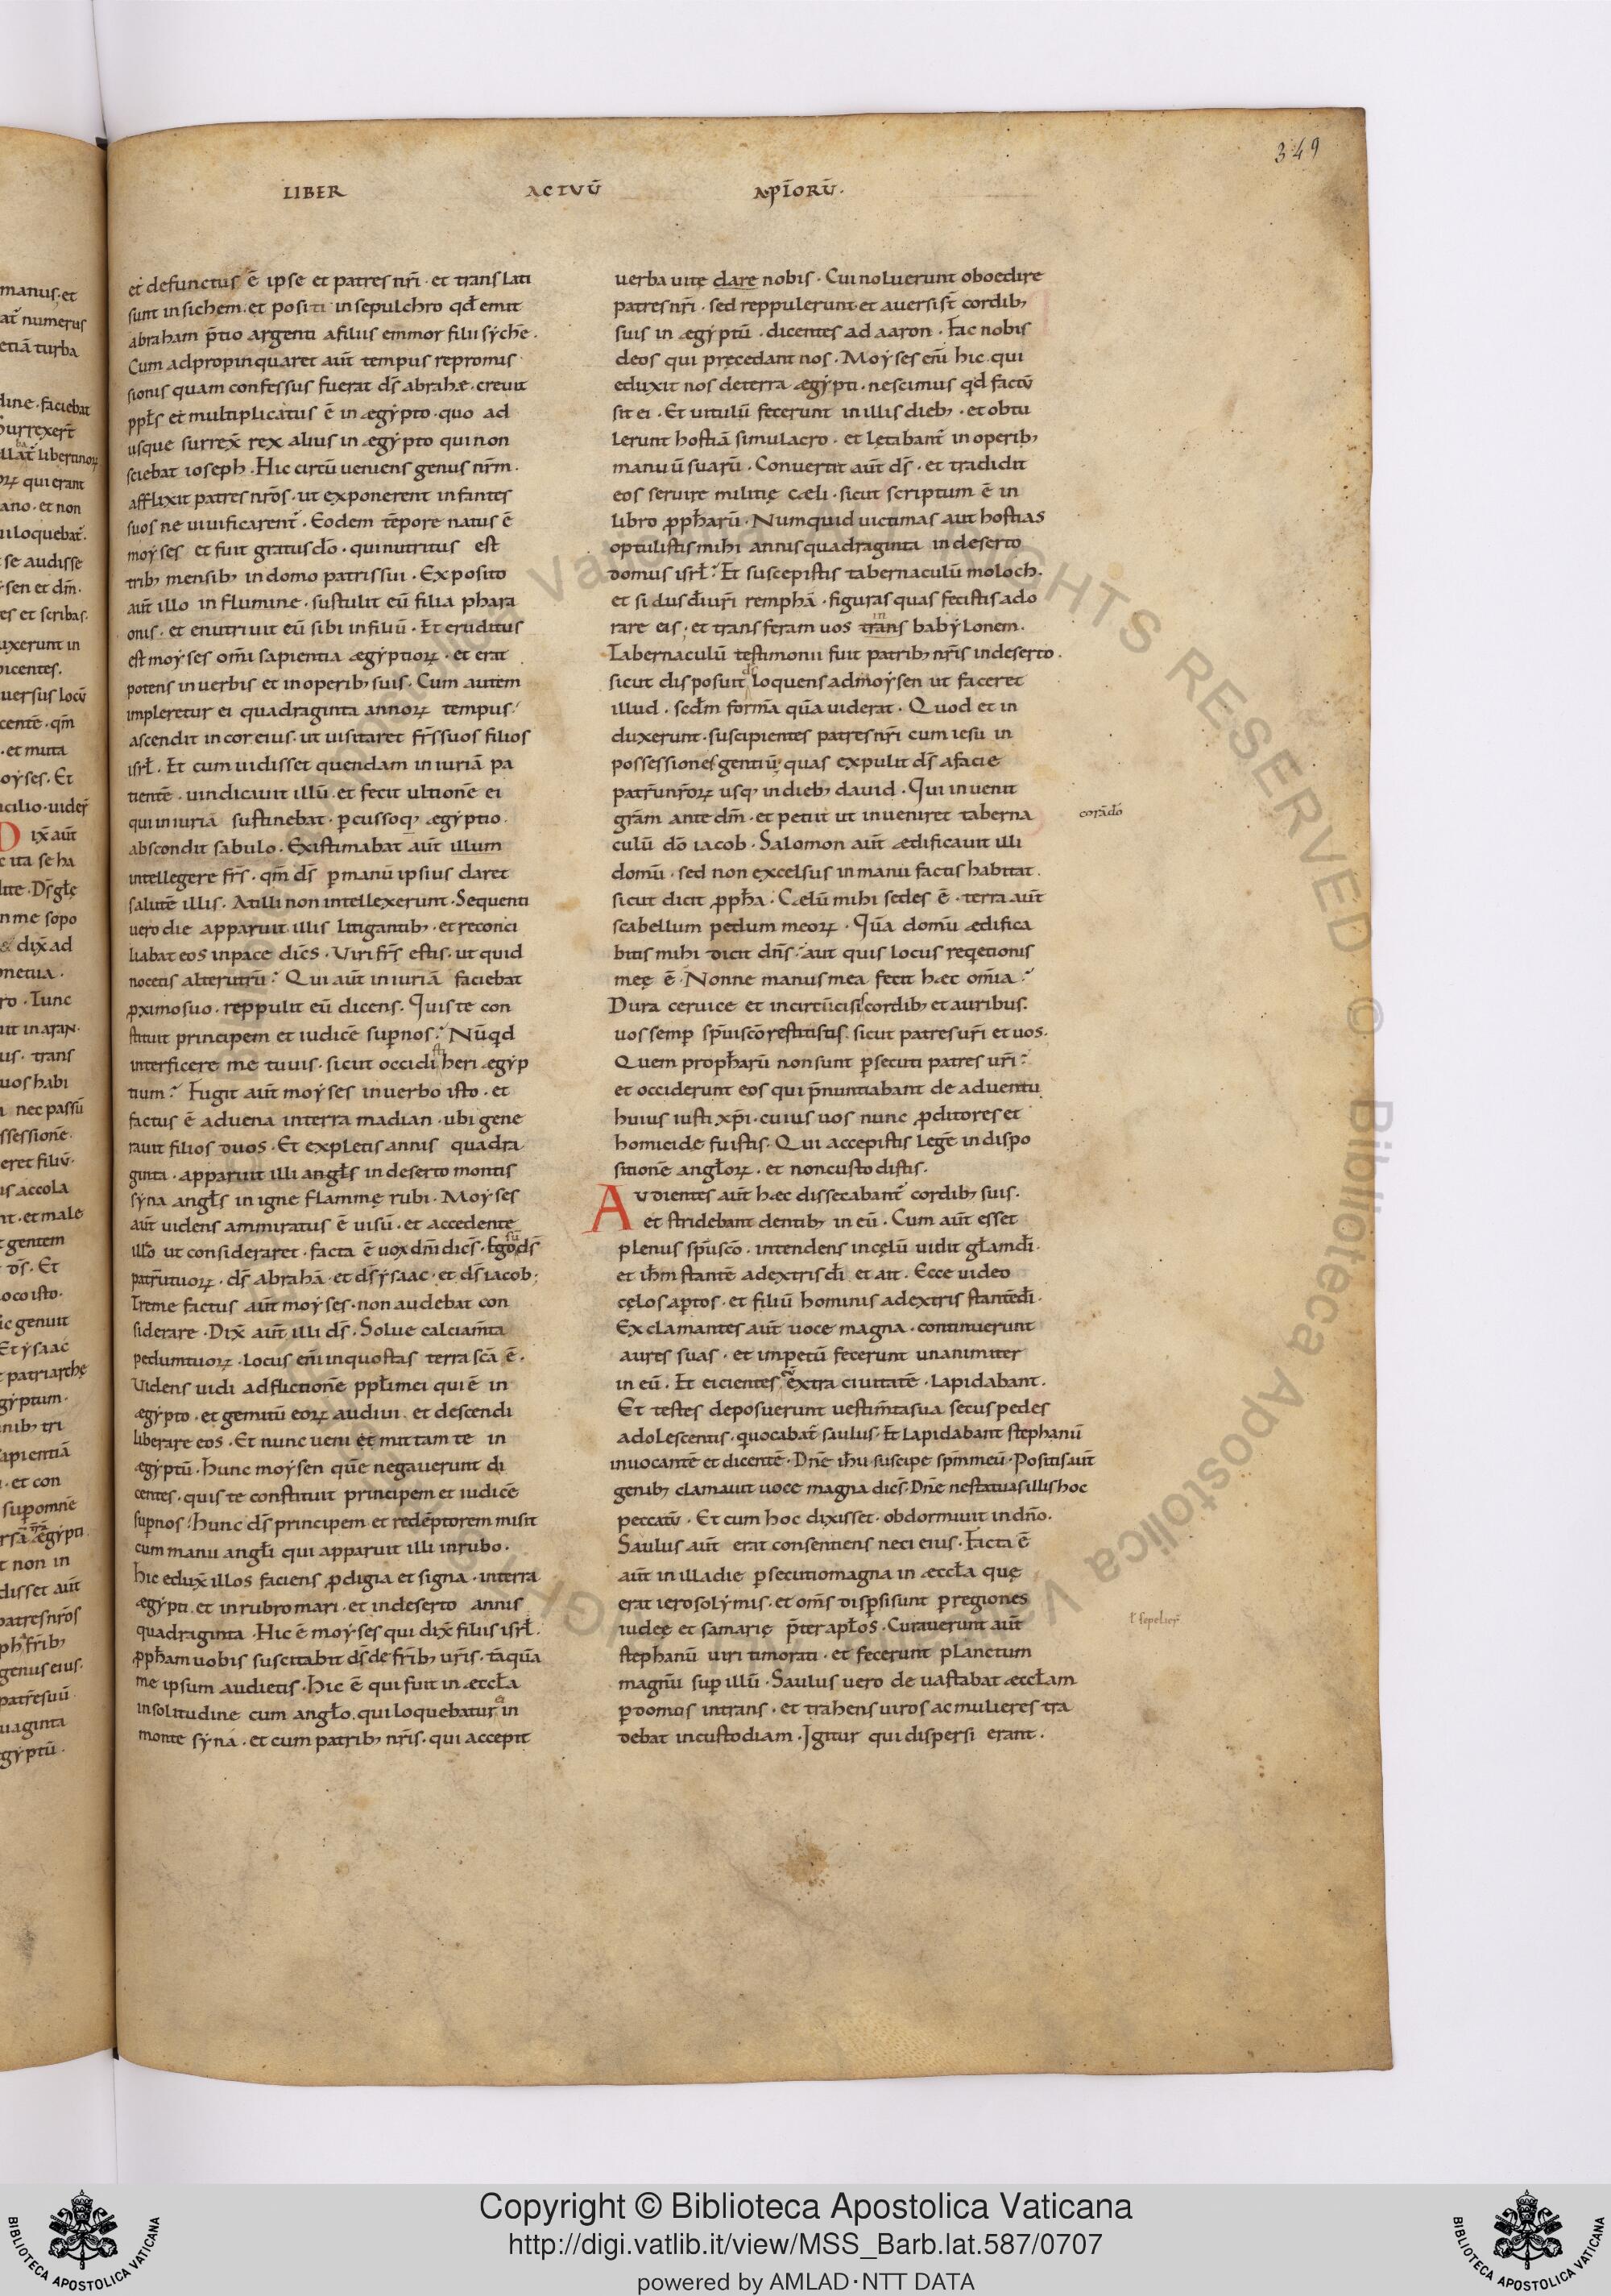 349
LIBER ACTVŪ APĪORŪ.
et defunctus ē ipse et patres nr̄i · et translati
sunt in sichem · et positi in sepulchro qđ emit
abraham p̄tio argenti a filiis emmor filii sẏchē ·
Cum adpropinquaret aūt tempus repromis
sionis quam confessus fuerat d̄s abrahæ · crevit
ppl̄s et multiplicatus ē in ægẏpto · quo ad
usque surrex̄ rex alius in ægẏpto qui non
sciebat ioseph · Hic circūveniens genus nr̄m ·
afflixit patres nr̄os · ut exponerent infantes
suos ne vivificarent̄ · Eodem tēpore natus ē
moẏses et fuit gratus dō · qui nutritus est
trib; mensib; in domo patris sui · Exposito
aūt illo in flumine · sustulit eū filia phara
onis · et enutrivit eū sibi in filiū · Et eruditus
est moẏses om̄i sapientia ægẏptioꝝ · et erat
potens in verbis et in operib; suis · Cum autem
impleretur ei quadraginta annoꝝ tempus ·
ascendit in cor eius · ut visitaret fr̄s suos filios
isrł · Et cum vidisset quendam iniuriā pa
tientē · vindicavit illū · et fecit ultionē ei
qui iniuriā sustinebat · ꝑcussoq; ægẏptio ·
abscondit sabulo · Existimabat aūt illum
intellegere fr̄s · qm̄ d̄s ꝑ manū ipsius daret
salutē illis · At illi non intellexerunt · Sequenti
vero die apparuit illis litigantib; · et reconci
liabat eos in pace dicēs · Viri fr̄s estis · ut quid
nocetis alterutrū? Qui aūt iniuriā faciebat
ꝓximo suo · reppulit eū dicens · Quis te con
stituit principem et iudicē suꝑ nos? Nūqd
interficere me tu vis · sicut occidisti heri ægẏp
tium? Fugit aūt moẏses in verbo isto · et
factus ē advena in terra madian · ubi gene
ravit filios duos · Et expletis annis quadra
ginta · apparuit illi angłs in deserto montis
sẏna angłs in igne flammę rubi · Moẏses
aūt videns ammiratus ē visū · et accedente
illo ut consideraret · facta ē vox dn̄i dicēs · Ego sū d̄s
patrū tuoꝝ · d̄s abrahā · et d̄s ẏsaac · et d̄s iacob ·
Treme factus aūt moẏses · non audebat con
siderare · Dix̄ aūt illi d̄s · Solve calciam̄ta
pedum tuoꝝ · Locus enī in quo stas terra scā ē ·
Videns vidi adflictionē ppłi mei qui ē in
ægẏpto · et gemitū eoꝝ audivi · et descendi
liberare eos · Et nunc veni et mittam te in
ægẏptū · Hunc moẏsen quē negaverunt di
centes · quis te constituit principem et iudicē
suꝑ nos · Hunc d̄s principem et redēptorem misit
cum manu angłi qui apparuit illi in rubo ·
Hic edux̄ illos faciens ꝓdigia et signa · in terra
ægẏpti · et in rubro mari · et in deserto annis
quadraginta · Hic ē moẏses qui dix̄ filiis isrł ·
ꝓpħam vobis suscitabit d̄s de fr̄ib; vr̄is · tāquā
me ipsum audietis · Hic ē qui fuit in æccła
in solitudine cum angło · qui loquebatur in
monte sẏna · et cum patrib; nr̄is · qui accepit
verba vitę dare nobis · Cui noluerunt oboedire
patres nr̄i · sed reppulerunt · et aversi st̄ cordib;
suis in ægẏptū · dicentes ad aaron · Fac nobis
deos qui pręcedant nos · Moẏses enī hic qui
eduxit nos de terra ægẏpti · nescimus qd factū
sit ei · Et vitulū fecerunt in illis dieb; · et obtu
lerunt hostiā simulacro · et lętabant̄ in operib;
manuū suarū · Convertit aūt d̄s · et tradidit
eos servire militię cæli · sicut scriptum ē in
libro ꝓpħarū · Numquid victimas aut hostias
optulistis mihi annis quadraginta in deserto
domus isrł? Et suscepistis tabernaculū moloch ·
et sidus đi vr̄i remphā · figuras quas fecistis ado
rare eis · et transferam vos trans in babẏlonem ·
Tabernaculū testimonii fuit patrib; nr̄is in deserto ·
sicut disposuit d̄s loquens ad moẏsen ut faceret
illud · scđm formā quā viderat · Quod et in
duxerunt · suscipientes patres nr̄i cum iesu in
possessiones gentiū · quas expulit d̄s a facie
patrū nr̄oꝝ usq; in dieb; david · Qui invenit
gr̄am ante dm̄ · et petiit ut inveniret taberna
corā dō
culū dō iacob · Salomon aūt ædificavit illi
domū · sed non excelsus in manu factis habitat ·
sicut dicit ꝓpħa · Cælū mihi sedes ē · terra aūt
scabellum pedum meoꝝ · Quā domū ædifica
bitis mihi dicit dn̄s · aut quis locus reqetionis
meę ē · Nonne manus mea fecit hæc om̄ia?
Dura cervice et incircūcisi cordib; et auribus ·
vos semꝑ spūi scō restitistis · sicut patres vr̄i et vos ·
Quem propħarū non sunt ꝑsecuti patres vr̄i?
et occiderunt eos qui p̄nuntiabant de adventu
huius iusti xp̄i · cuius vos nunc ꝓditores et
homicide fuistis · Qui accepistis legē in dispo
sitionē angłoꝝ · et non custodistis ·
Audientes aūt hæc dissecabant̄ cordib; suis ·
et stridebant dentib; in eū · Cum aūt esset
plenus spū scō · intendens in cęlū vidit głam đi ·
et iħm stantē a dextris đi et ait · Ecce video
cęlos aꝑtos · et filiū hominis a dextris stantē đi ·
Exclamantes aūt voce magna · continuerunt
aures suas · et impetū fecerunt unanimiter
in eū · Et eicientes eū extra civitatē · lapidabant ·
Et testes deposuerunt vestim̄ta sua secus pedes
adolescentis · q vocabat̄ saulus · Et lapidabant stephanū
invocantē et dicentē · Dn̄e iħu suscipe spm̄ meū · Positis aūt
genib; clamavit voce magna dicēs · Dn̄e ne statuas illis hoc
peccatū · Et cum hoc dixisset · obdormivit in dn̄o ·
Saulus aūt erat consentiens neci eius · Facta ē
aūt in illa die ꝑsecutio magna in æccła quę
erat ierosolẏmis · et om̄s disꝑsi sunt ꝑ regiones
iudeę et samarię p̄ter apłos · Curaverunt aūt
ł sepelier̄
stephanū viri timorati · et fecerunt planctum
magnū suꝑ illū · Saulus vero devastabat æccłam
ꝑ domos intrans · et trahens viros ac mulieres tra
debat in custodiam · Igitur qui dispersi erant ·
Copyright © Biblioteca Apostolica Vaticana
http://digi.vatlib.it/view/MSS_Barb.lat.587/0707
powered by AMLAD·NTT DATA